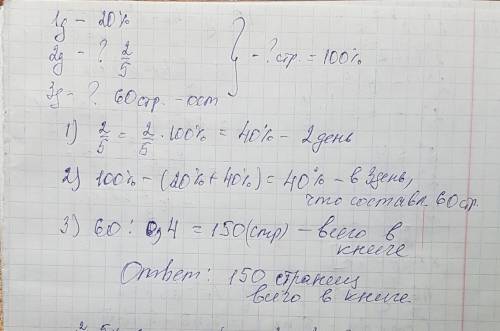 1д - 20%
2д - ? 2/5
} - ? стр. = 100%
3д - ? 60 стр. - ост
1) 2/5 = 2/5 · 100% = 40% - 2 день
2) 100% - (20% + 40%) = 40% - в 3 день,
что составл. 60 стр.
3) 60 : 0,4 = 150 (стр) - всего в
книге
Ответ: 150 страниц
всего в книге.